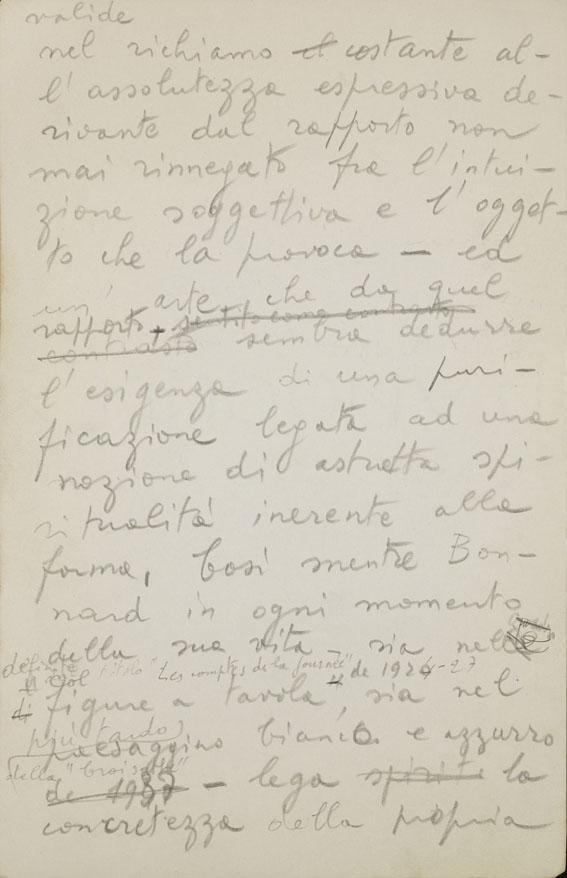 valide
nel richiamo el costante al-
l'assolutezza espressiva de-
rivante dal rapporto non
mai rinnegato fra l'intui-
zione soggettiva e l'ogget-
to che la provoca — ed
un' arte, che da quel
rapporto + sentito come contrasto
contrasto sembra dedurre
l'esigenza di una puri-
ficazione legata ad una
nozione di astratta spi-
ritualità inerente alla
forma, Così mentre Bon-
nard in ogni momento
della sua vita — sia nelle
definite
col titolo "Les comptes de la journée" de 1924-27
di figure a tavola, sia nel
più tardo
paesaggino bianco e azzurro
della "
de 1937 — lega spiriti la
concretezza della propria